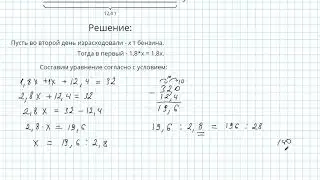 12,4 т
Решение:
Пусть во второй день израсходовали - x т бензина.
Тогда в первый - 1,8*x = 1,8x.
Составим уравнение согласно с условием:
1,8x + 1x + 12,4 = 32
2,8x + 12,4 = 32
2,8x = 32 - 12,4
2,8 · x = 19,6
x = 19,6 : 2,8
10
- 32,0
12,4
19,6
19,6 : 2,8 = 196 : 28